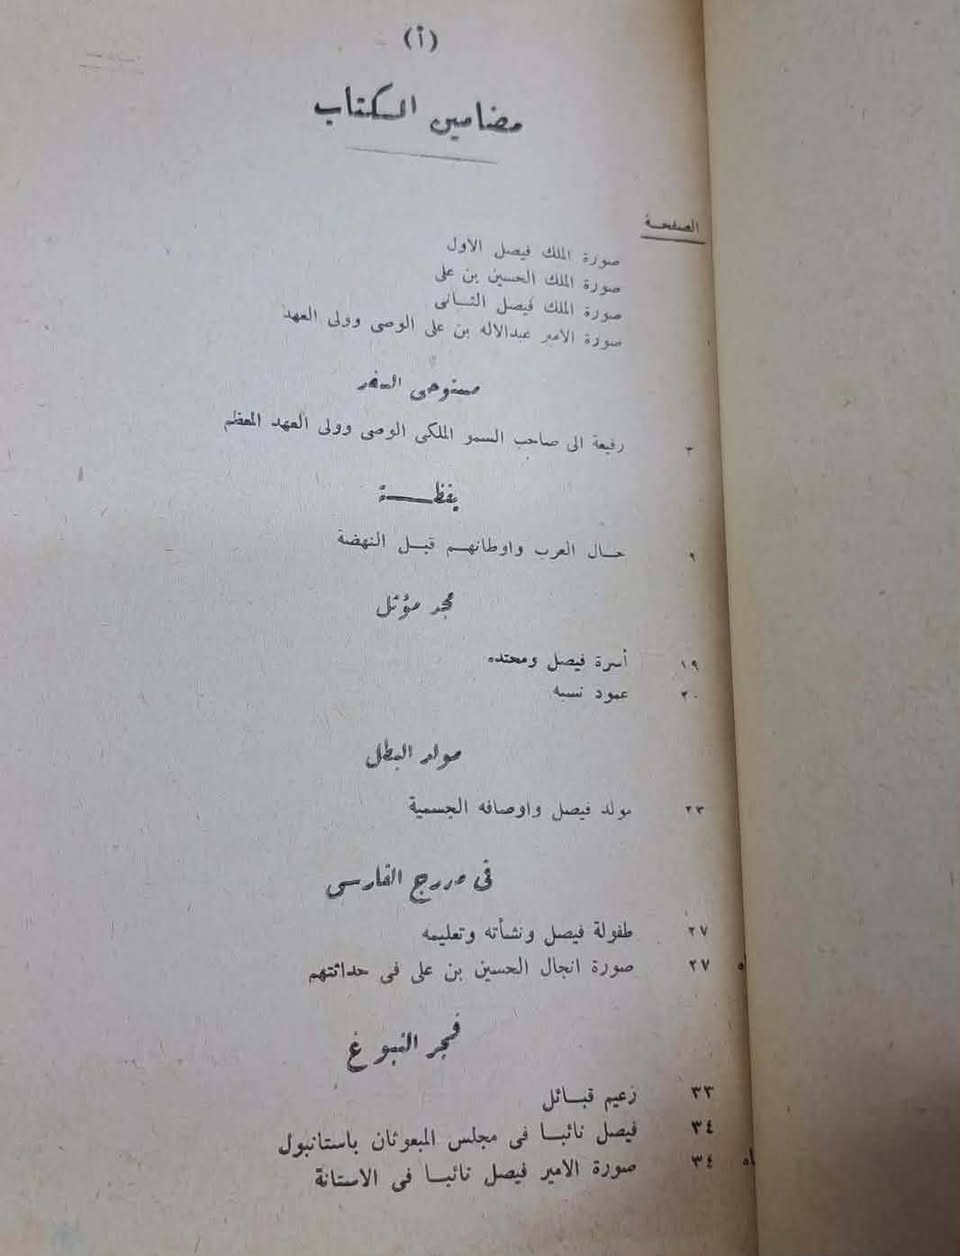 (أ)
مضامين الكتاب
الصفحة
صورة الملك فيصل الاول
صورة الملك الحسين بن على
صورة الملك فيصل الثانى
صورة الامير عبدالاله بن على الوصى وولى العهد
٣ رفيعة الى صاحب السمو الملكى الوصى وولى العهد المعظم
يقظة
٩ حال العرب واوطانهم قبل النهضة
مجد مؤثل
١٩ أسرة فيصل ومحتده
٢٠ عمود نسبه
مولد البطل
٢٣ مولد فيصل واوصافه الجسمية
فى مدرج الفارس
٢٧ طفولة فيصل ونشأته وتعليمه
٢٧ صورة انجال الحسين بن على فى حداثتهم
فجر النبوغ
٣٣ زعيم قبائل
٣٤ فيصل نائبا فى مجلس المبعوثان باستانبول
٣٤ صورة الامير فيصل نائبا فى الاستانة